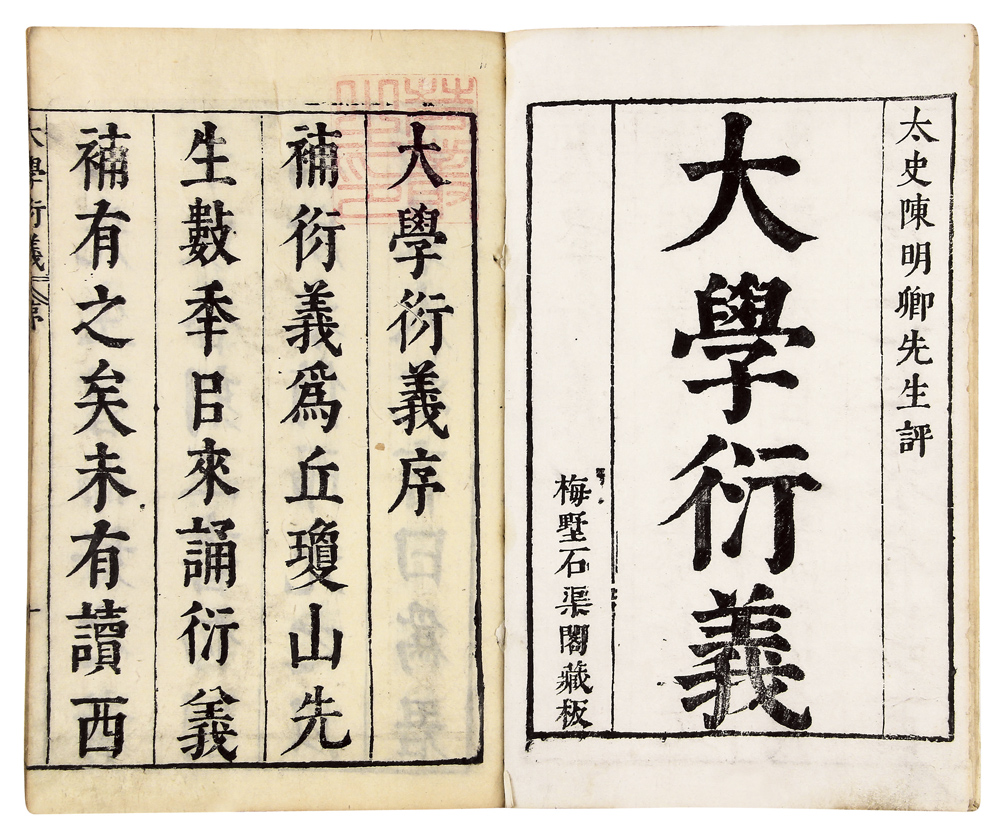 太史陳明卿先生評
大學衍義
梅墅石渠閣藏板
大學衍義序
補衍義爲丘瓊山先
生數秊㠯來誦衍義
補有之矣未有讀西
大學衍義 序